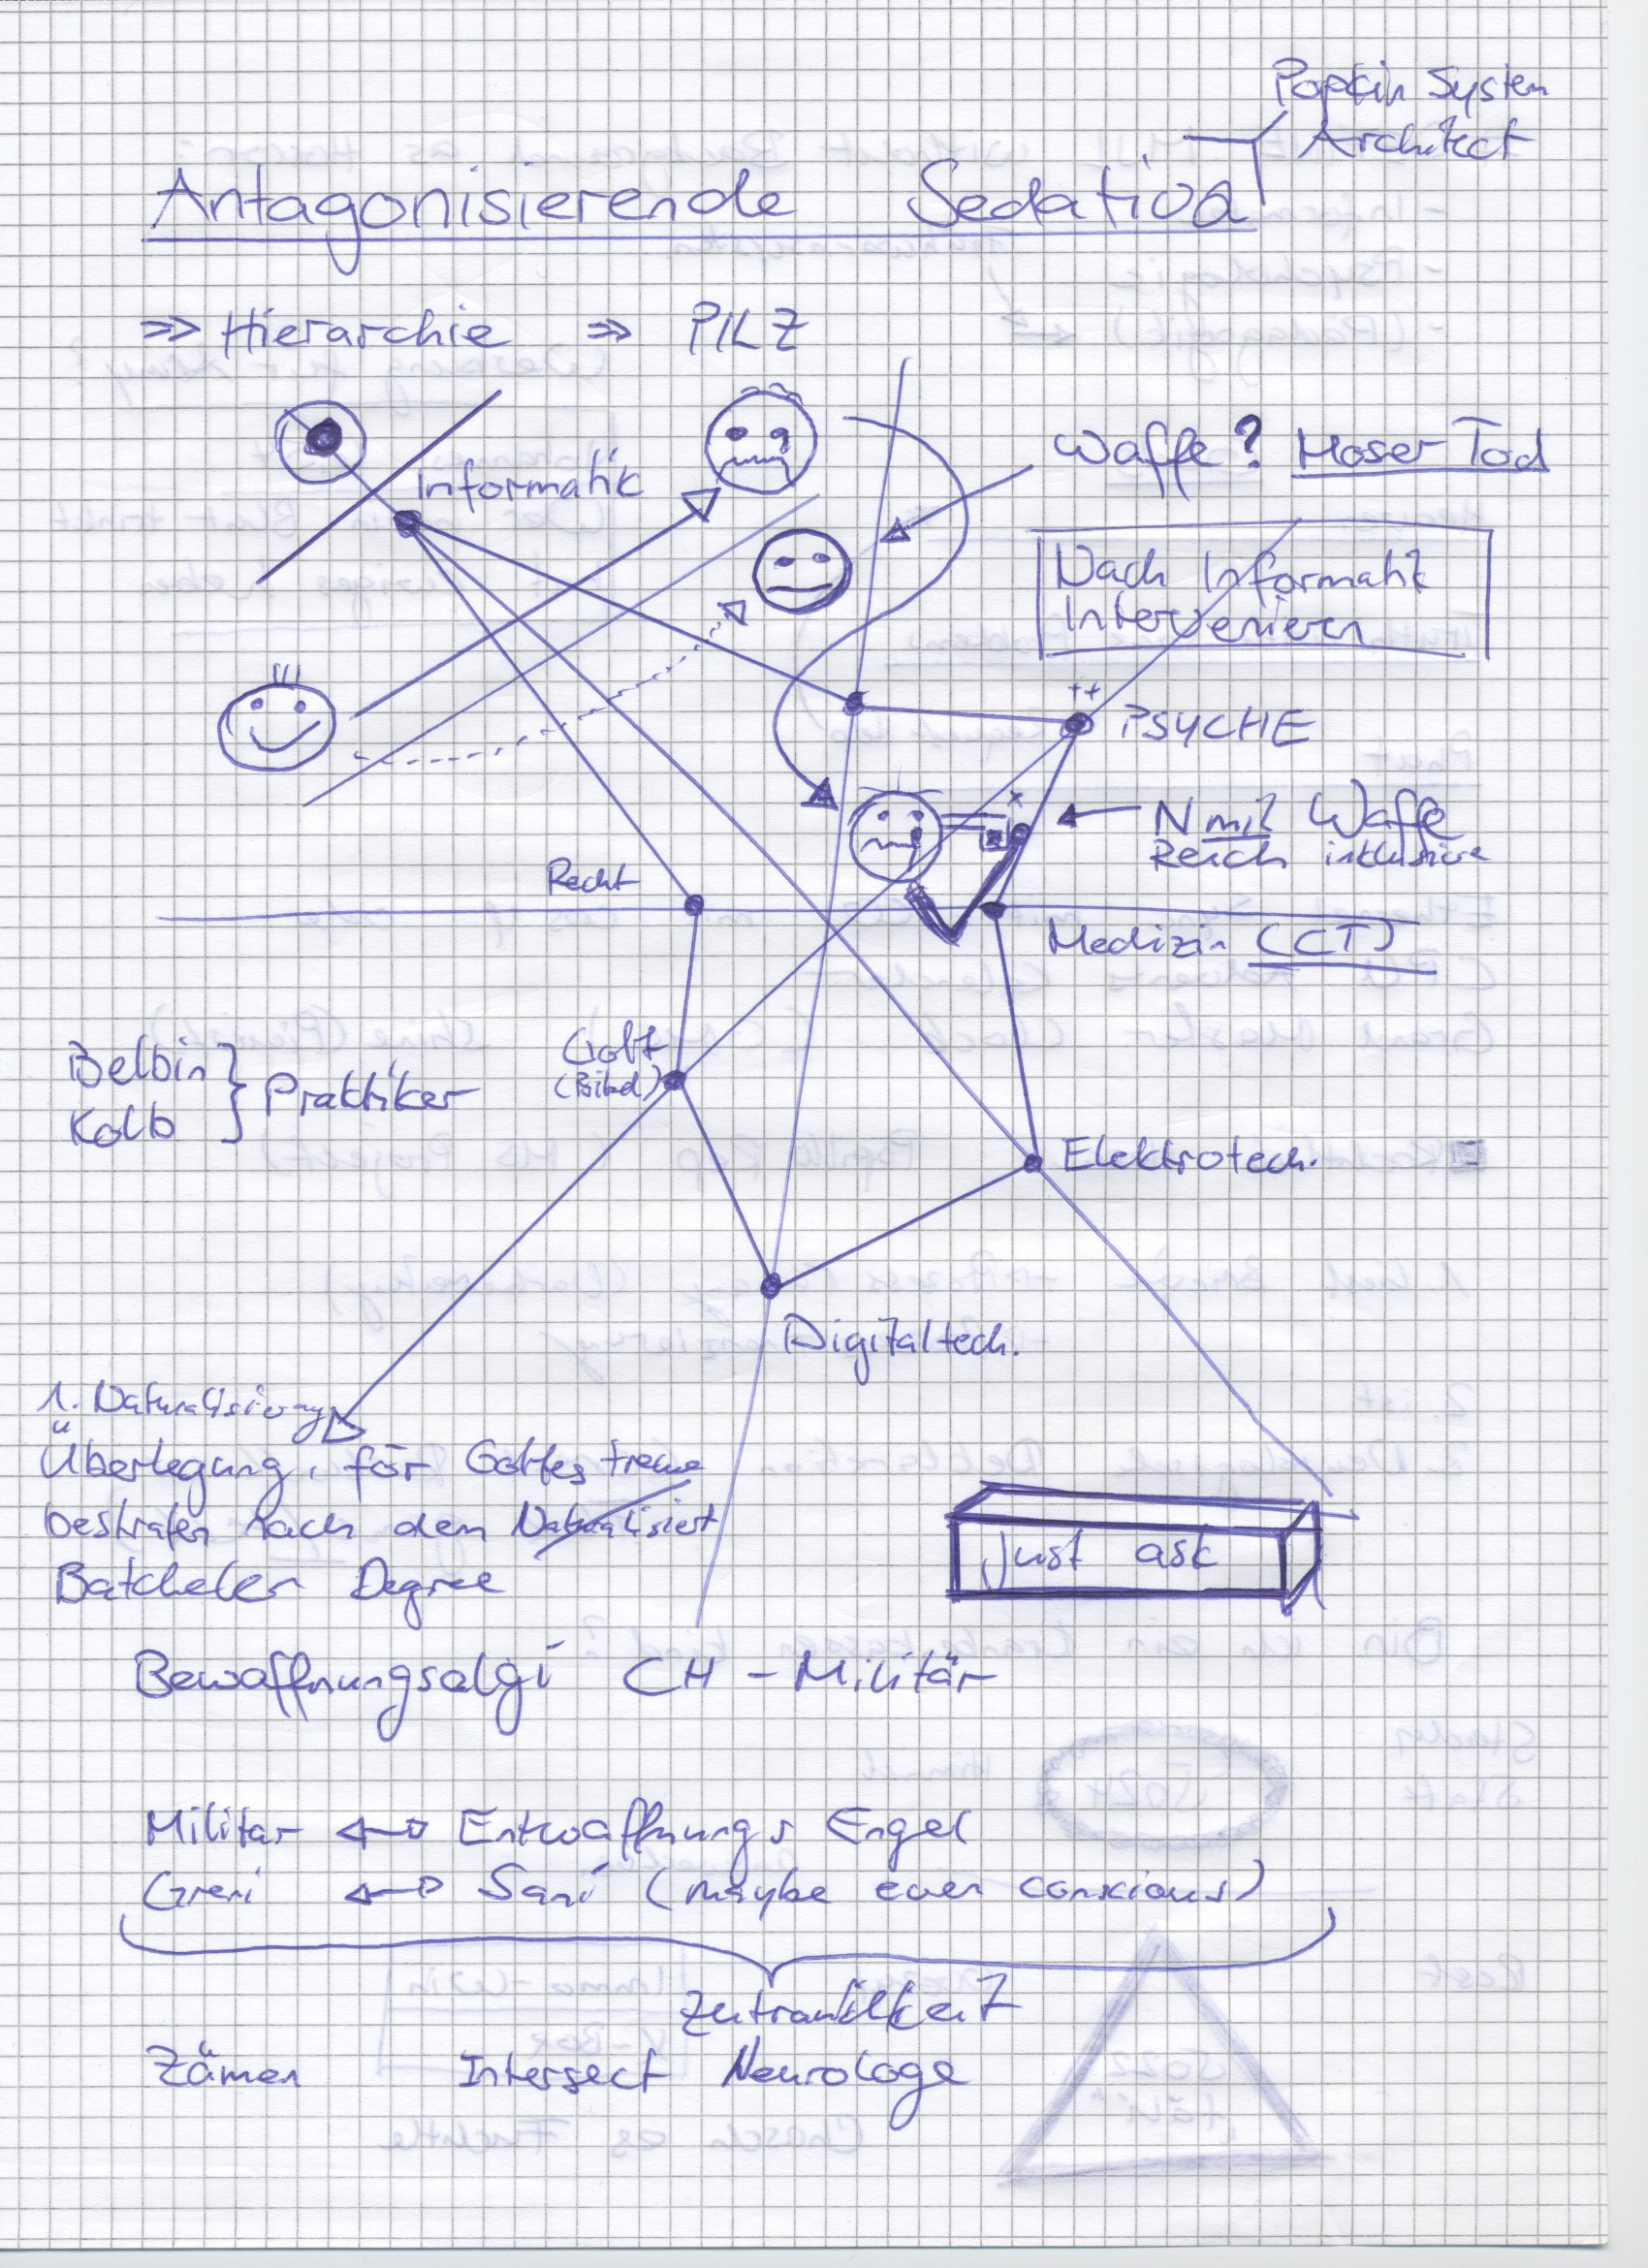 Popkin System
Architect
Antagonisierende Sedativa
⇒ Hierarchie ⇒ PILZ
Informatik
Waffe? Moser Tod
Nach Informatik
Intervenieren
++
PSYCHE
x
N mil Waffe
Reich inklusive
Recht
Medizin (CT)
Gott
Belbin
Kolb
} Praktiker
Elektrotech.
Digitaltech.
1. Naturalisierung
Überlegung, für Gottes treue
bestrafen nach dem Naturalisiert
Batcheler Degree
just ask
Bewaffnungsalgi CH - Militär
Militar ↔ Entwaffnungs Engel
Greni ↔ Sani (maybe even conscious)
Zämen Intersect Neurologe